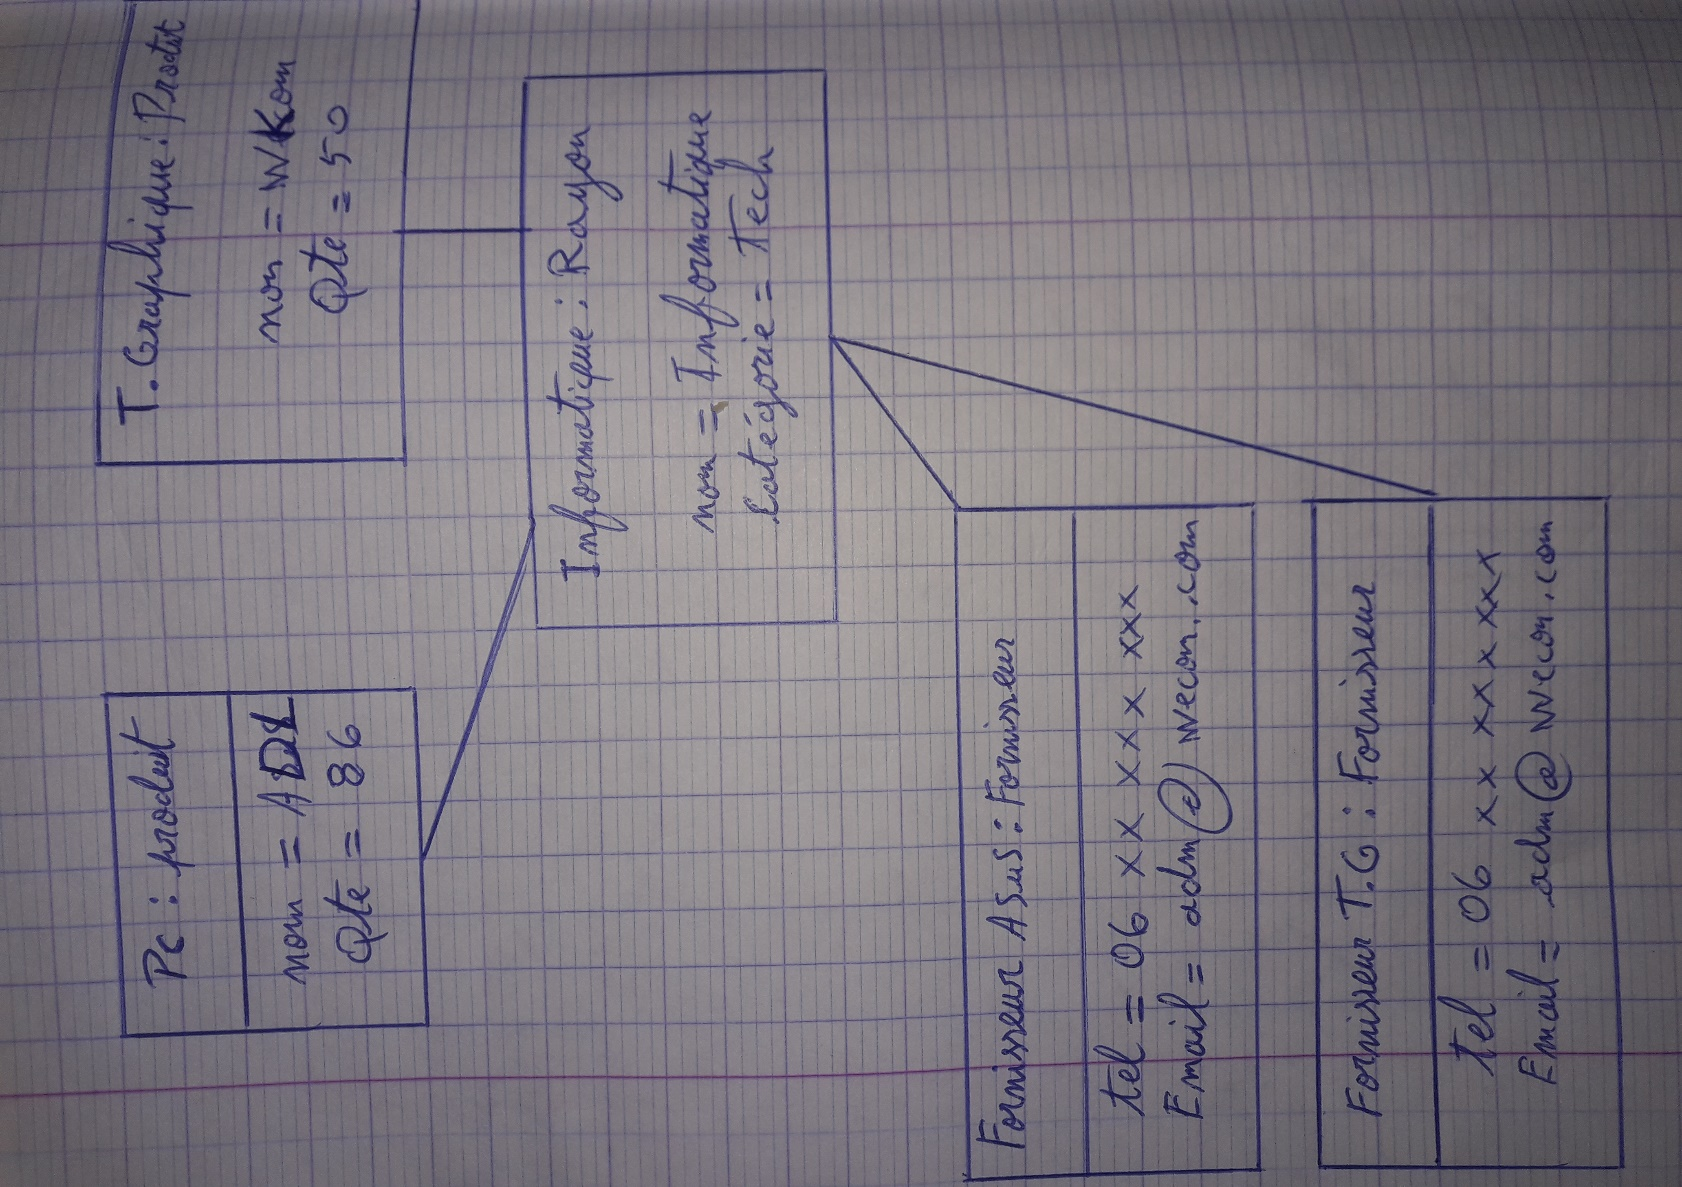 Pc : produit
nom =
Qte = 86
T. Graphique : Produit
nom = Wkom
Qte = 50
Informatique : Rayon
nom = Informatique
Catégorie = Tech
Fornisseur Asus : Fornisseur
tel = 06 xx xx xx xxx
Email = adm@wecom.com
Fornisseur T.G : Fornisseur
tel = 06 xx xx xx xxx
Email = adm@wecom.com